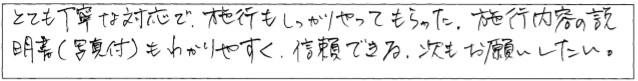 とても丁寧な対応で、施行もしっかりやってもらった。施行内容の説
明書(写真付)もわかりやすく、信頼できる。次もお願いしたい。